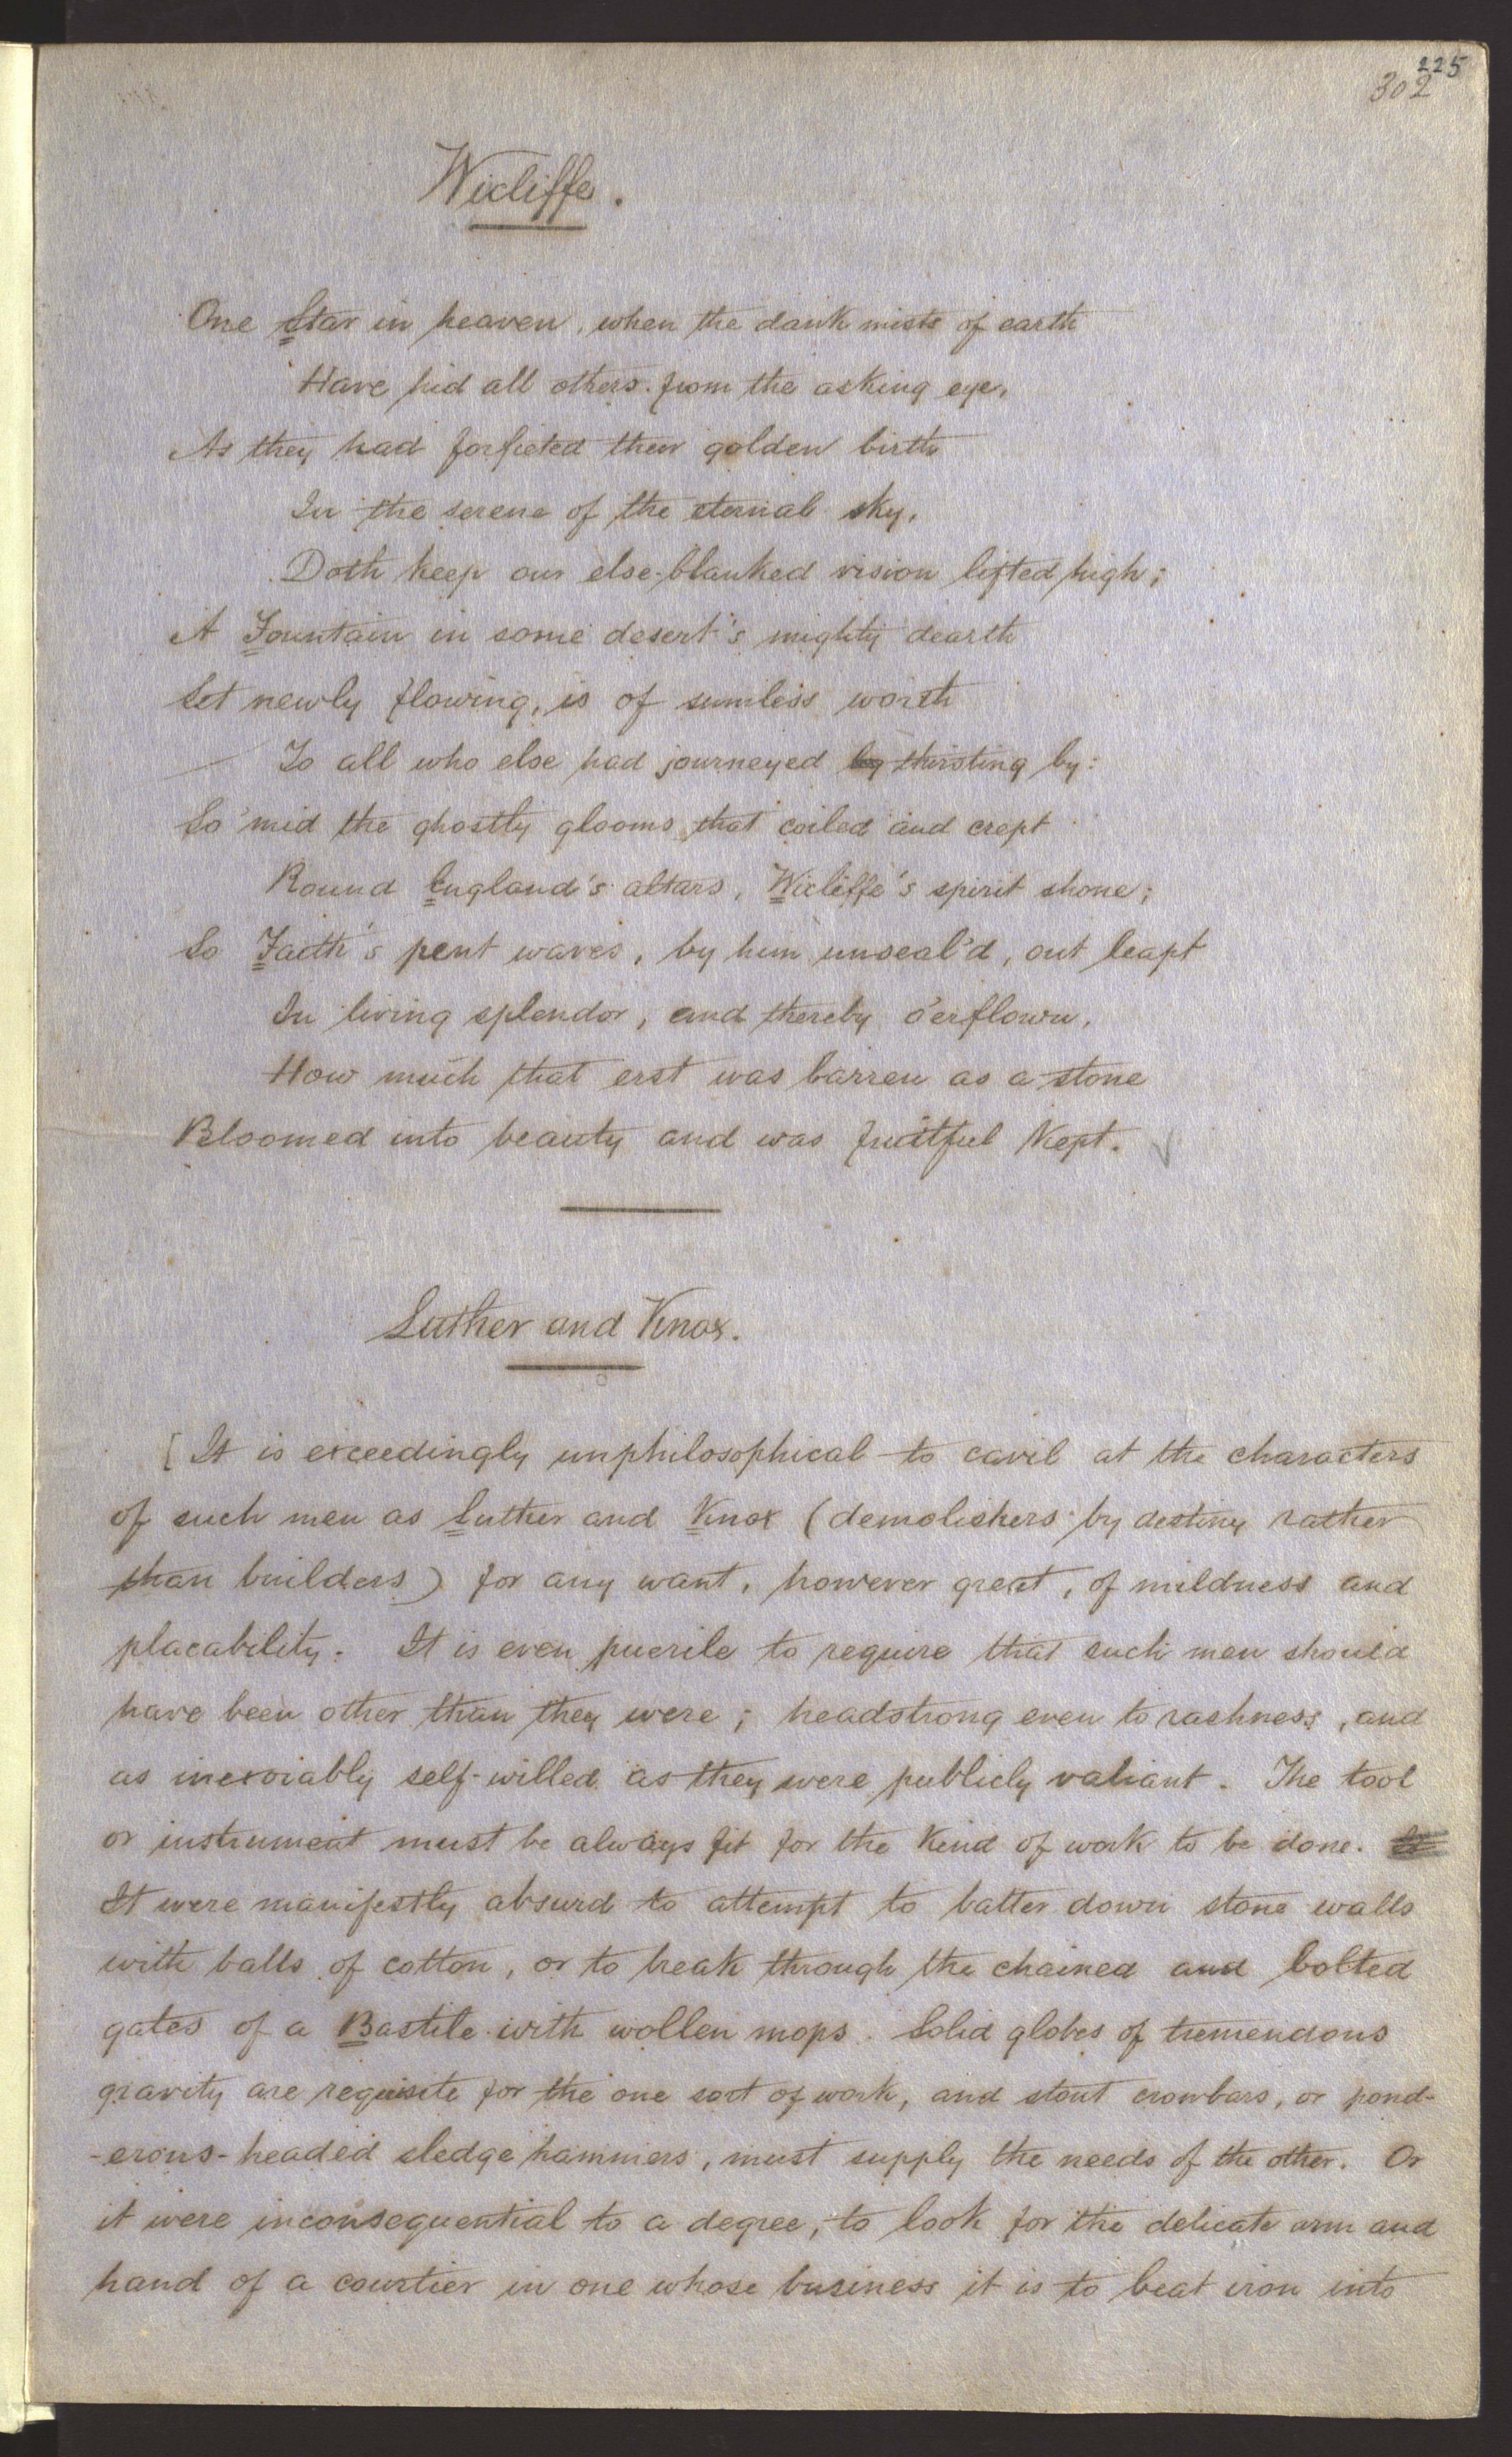 225
302
Wicliffe.
One Star in heaven, when the dank mists of earth
Have hid all others from the asking eye,
As they had forfieted their golden birth
In the serene of the eternal sky,
Doth keep our else-blanked vision lifted high;
A Fountain in some desert's mighty dearth
Set newly flowing, is of sumless worth
To all who else had journeyed by thirsting by:
So 'mid the ghostly glooms that coiled and crept
Round England's altars, Wicliffe's spirit shone;
So Faith's pent waves, by him unseal'd, out leapt
In living splendor, and thereby o'erflown,
How much that erst was barren as a stone
Bloomed into beauty and was fruitful kept.
Luther and Knox.
[It is exceedingly unphilosophical to cavil at the characters
of such men as Luther and Knox (demolishers by destiny rather
than builders) for any want, however great, of mildness and
placability. It is even puerile to require that such men should
have been other than they were; headstrong even to rashness, and
as inexorably self-willed as they were publicly valiant. The tool
or instrument must be always fit for the kind of work to be done.
It were manifestly absurd to attempt to batter down stone walls
with balls of cotton, or to break through the chained and bolted
gates of a Bastile with wollen mops. Solid globes of tremendous
gravity are requisite for the one sort of work, and stout crowbars, or pond-
-erous-headed sledge hammers, must supply the needs of the other. Or
it were inconsequential to a degree, to look for the delicate arm and
hand of a courtier in one whose business it is to beat iron into